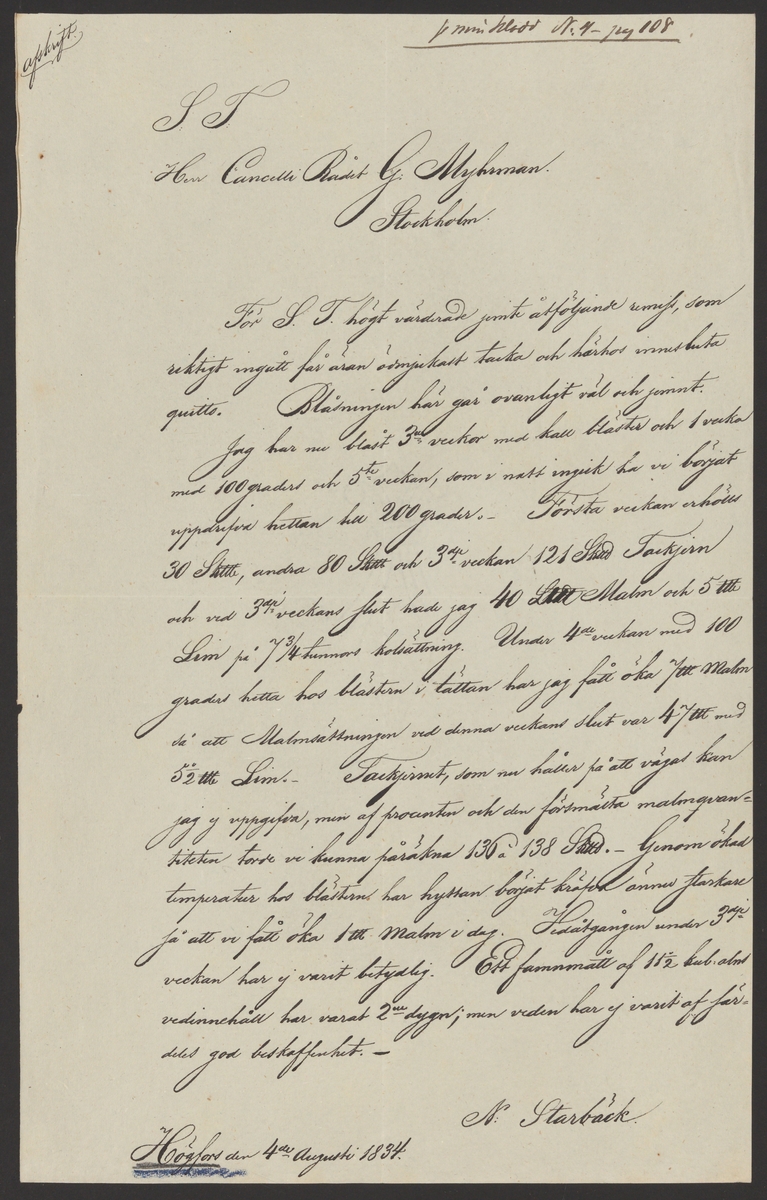 afskrift.
N: 4 - pag 108
S. T.
Herr Cancelli Rådet G. Myhrman.
Stockholm.
För S. T. högt värderade jemte åtföljande remiss, som
riktigt ingått får äran ödmjukast tacka och härhos innesluta
quitto. Blåsningen här går ovanligt väl och jemnt.
Jag har nu blåst 3ne veckor med kall bläster och 1 vecka
med 100 graders och 5te veckan, som i natt ingick ha vi börjat
uppdrifva hettan till 200 grader. – Första veckan erhölls
30 Sk℔, andra 80 Sk℔ och 3dje veckan 121 Sk℔ Tackjern
och vid 3dje veckans slut hade jag 40 L℔ Malm och 5 ℔
Lim på 7 3/4 tunnors kolsättning. Under 4de veckan med 100
graders hetta hos blästern i tättan har jag fått öka 7 ℔ Malm
så att Malmsättningen vid denna veckans slut var 47 ℔ med
5 1/2 ℔ Lim. – Tackjernet, som nu håller på att vägas kan
jag ej uppgifva, men af procenten och den försmälta malmqvan=
titeten torde vi kunna påräkna 136 à 138 Sk℔. – Genom ökad
temperatur hos blästern har hyttan börjat kräfva ännu starkare
så att vi fått öka 1 ℔ Malm i dag. Vedåtgången under 3dje
veckan har ej varit betydlig. Ett famnmått af 11 1/2 kub. alns
vedinnehåll har varat 2ne dygn; men veden har ej varit af sär=
deles god beskaffenhet. –
N. Starbäck.
Högfors den 4de Augusti 1834.